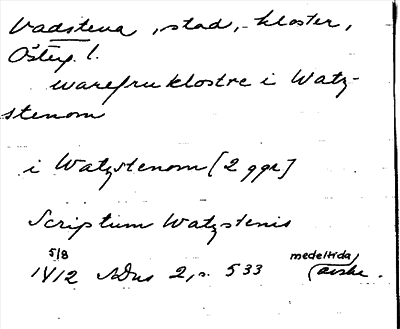 Vadstena, stad, - kloster,
Österg. l.
warefru klostre i Watz-
stenom
i Watzstenom [2 ggr]
Scriptum Watzstenis
5/8
1412 SDns 2, s. 533 medeltida
avskr.